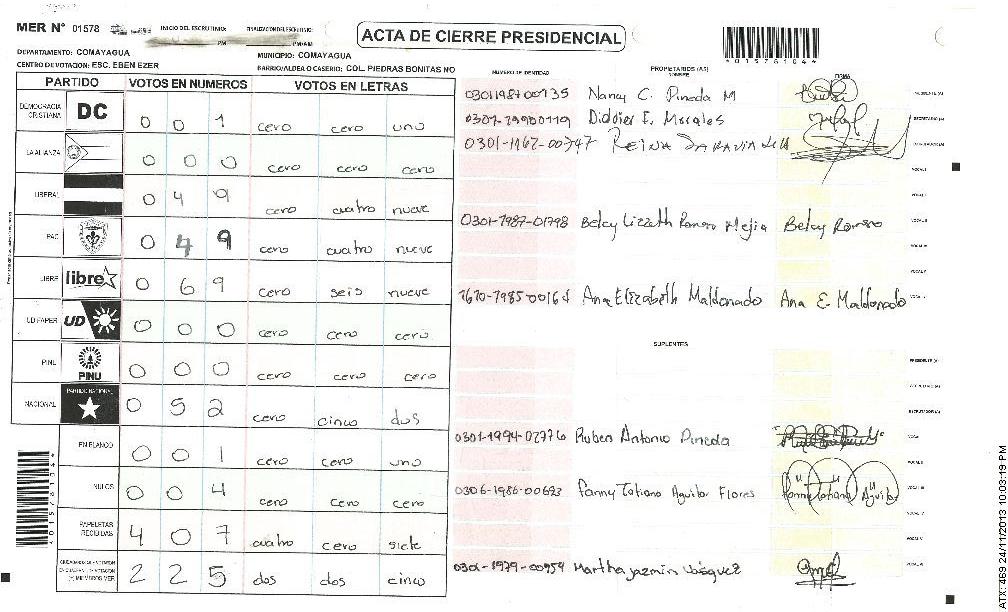 MER Nº 01578 INICIO DEL ESCRUTINIO: PM FINALIZACION DEL ESCRUTINIO: PM/AM
ACTA DE CIERRE PRESIDENCIAL
*01578104*
DEPARTAMENTO: COMAYAGUA MUNICIPIO: COMAYAGUA
CENTRO DE VOTACION: ESC. EBEN EZER BARRIO/ALDEA O CASERIO: COL. PIEDRAS BONITAS NO
PARTIDO VOTOS EN NUMEROS VOTOS EN LETRAS
DEMOCRACIA CRISTIANA DC 0 0 1 cero cero uno
LA ALIANZA 0 0 0 cero cero cero
LIBERAL 0 4 9 cero cuatro nueve
PAC 0 4 9 cero cuatro nueve
LIBRE libre 0 6 9 cero seis nueve
UD FAPER UD 0 0 0 cero cero cero
PINU PINU 0 0 0 cero cero cero
NACIONAL PARTIDO NACIONAL 0 5 2 cero cinco dos
EN BLANCO 0 0 1 cero cero uno
NULOS 0 0 4 cero cero cero
PAPELETAS RECIBIDAS 4 0 7 cuatro cero siete
2 2 5 dos dos cinco
NUMERO DE IDENTIDAD PROPIETARIOS (AS) NOMBRE FIRMA
0301198700135 Nancy C. Pineda M PRESIDENTE (A)
Didier E. Morales SECRETARIO (A)
0301-1967-00747 REINA SARAVIA ESCRUTADOR (A)
VOCAL I
0301-1987-01798 Belcy Lizzeth Romero Mejia Belcy Romero
Ana Elizabeth Maldonado Ana E Maldonado
SUPLENTES
PRESIDENTE (A)
SECRETARIO (A)
ESCRUTADOR (A)
0301-1994-02776 Ruben Antonio Pineda VOCAL I
0306-1986-00693 Fanny Tatiana Aguilar Flores Fanny Tatiana Aguilar
0301-1979-00954 Martha Jazmin Vasquez
*01578104*
ATX: 469 24/11/2013 10:03:19 PM